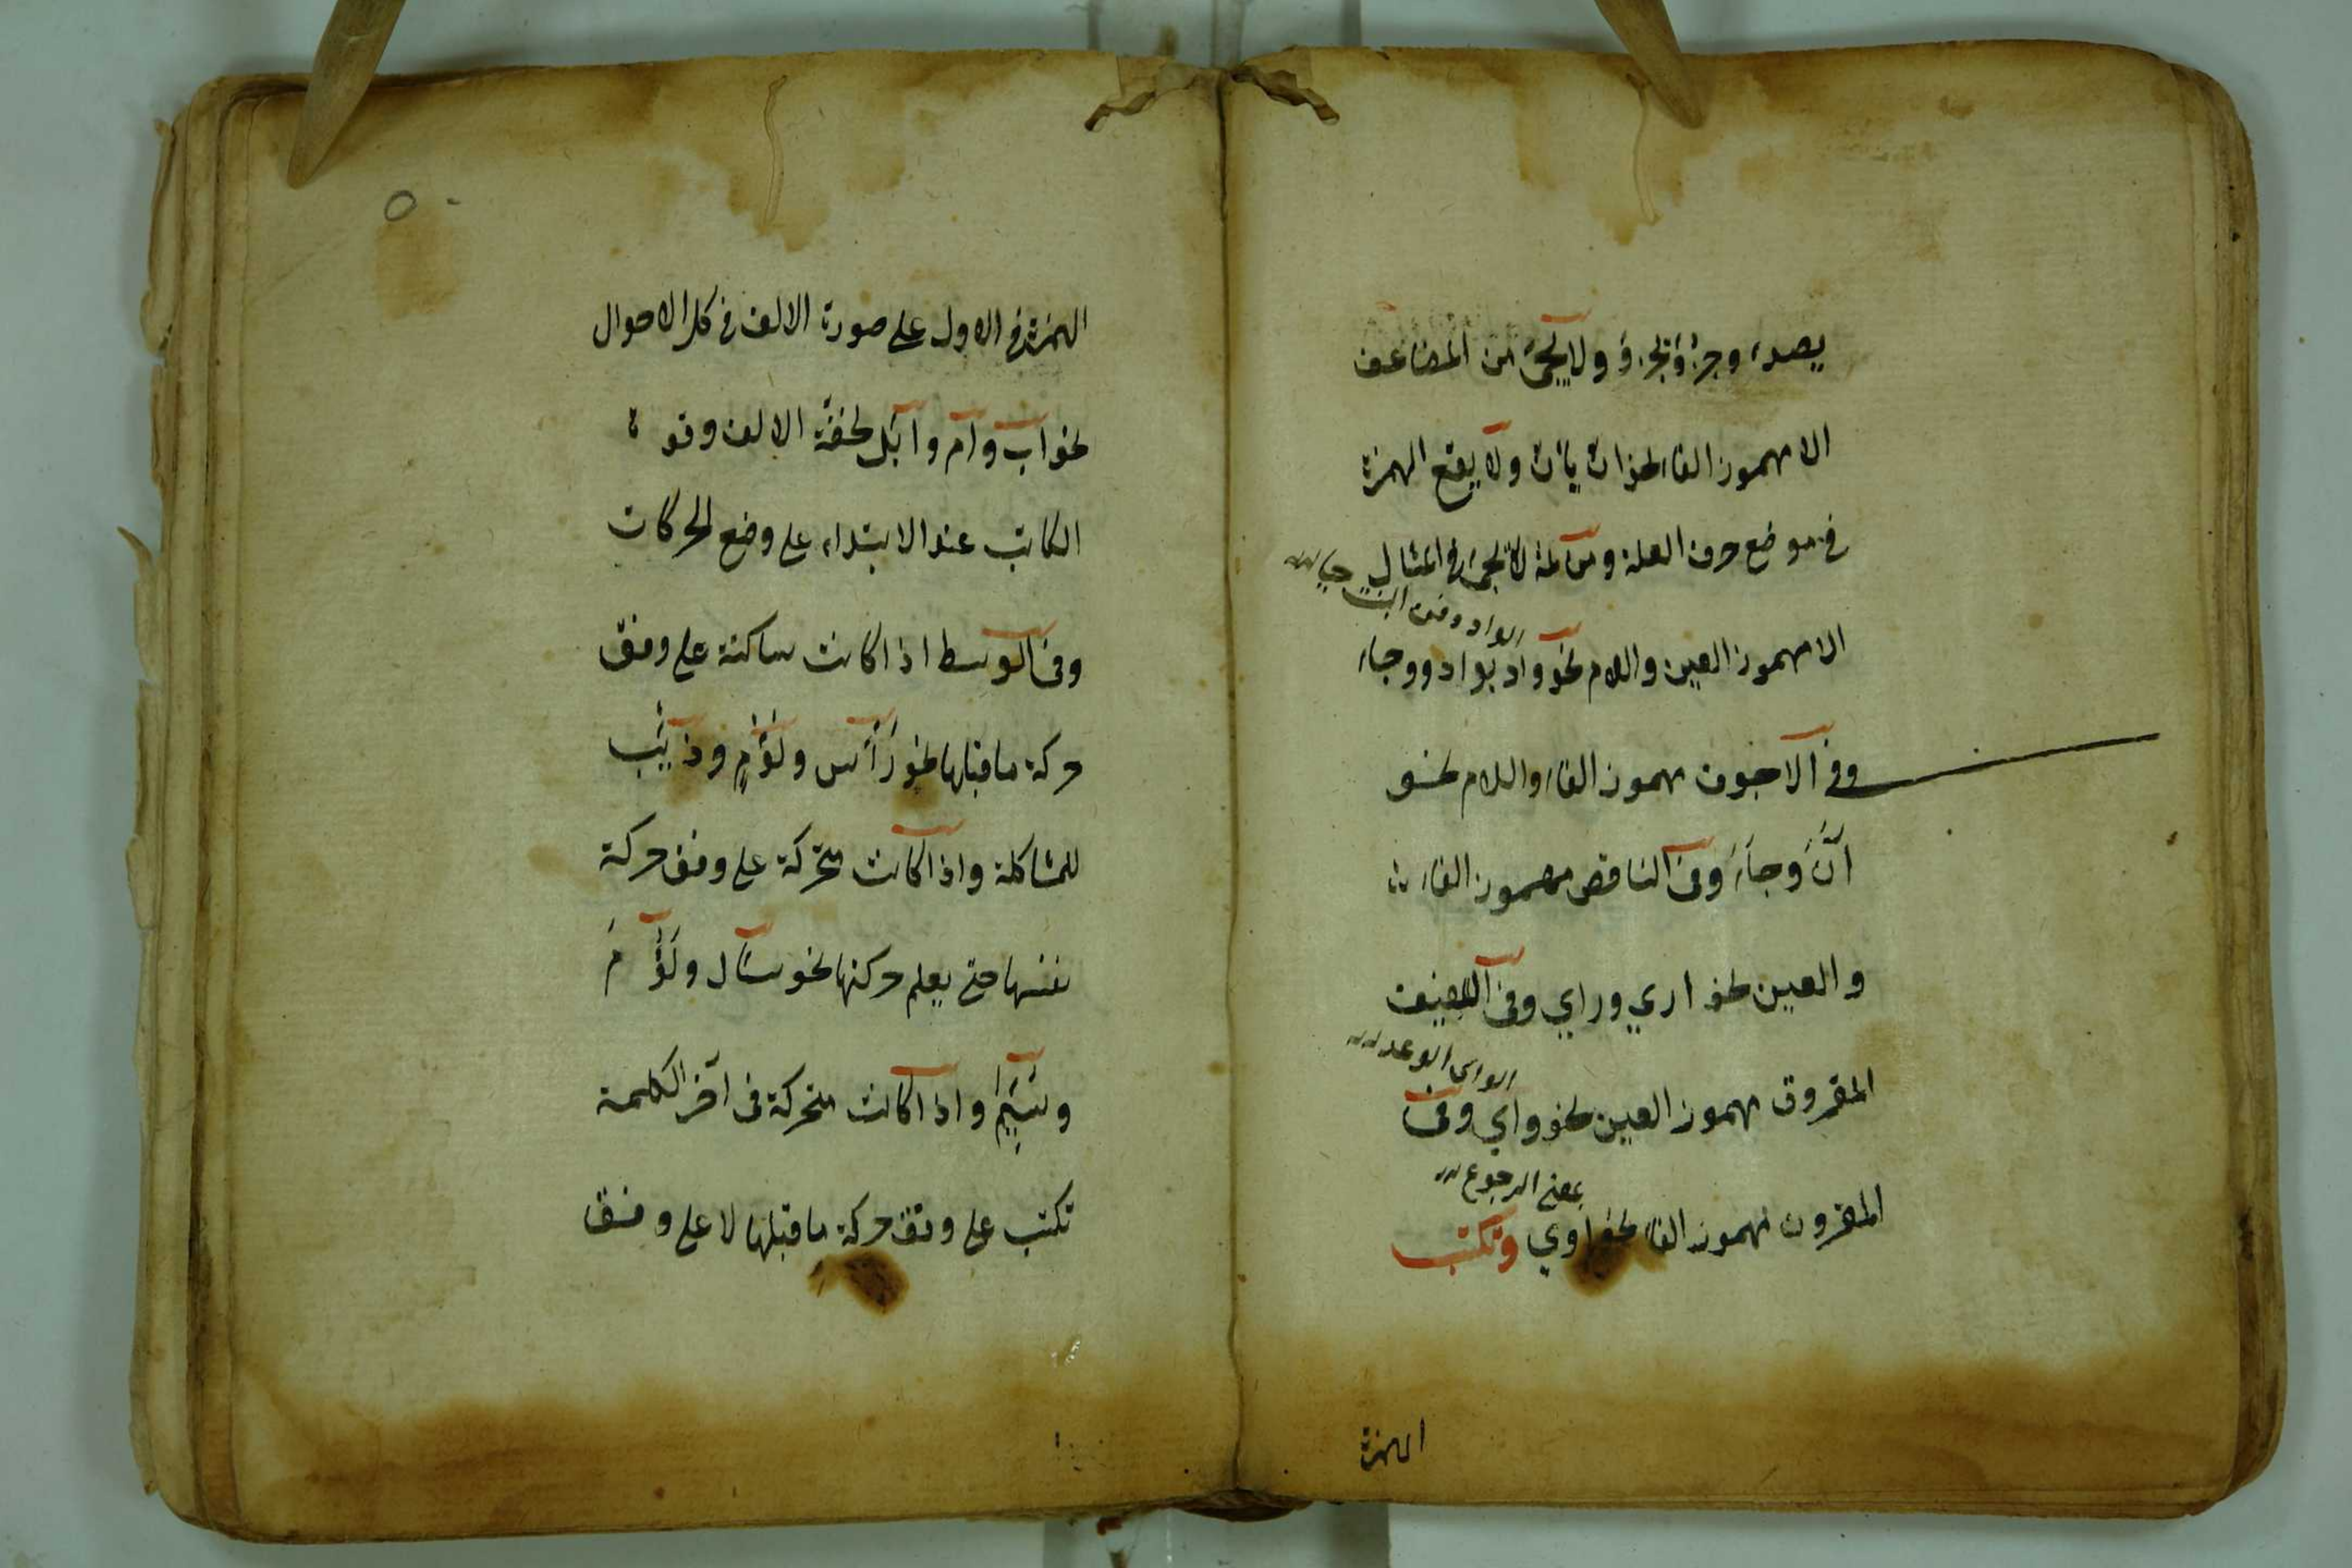 يصدء وجرؤ يجرؤ ولا يجئ من المضاعف
الا مهموز الفاء نحو ان يأن ولا يقع الهمزة
في موضع حرف العلة ومن ثمة لا يجئ في المثال
الا مهموز العين واللام نحو واد يواد ووجاء
الواد دفن البنت حيا
وفي الاجوف مهموز الفاء واللام نحو
آنَ وجاءَ وفي الناقص مهموز الفاء
والعين نحو اري وراي وفي اللفيف
المقروق مهموز العين نحو واي وفي
الواى الوعد
المقرون مهموز الفاء نحو اوي وتكتب
بمعنى الرجوع
الهمزة
٥٠
الهمزة في الاول على صورة الالف في كل الاحوال
نحو اب وام وابل لخفة الالف وقوة
الكاتب عند الابتداء على وضع الحركات
وفي الوسط اذا كانت ساكنة على وفق
حركة ما قبلها نحو رَأْس ولُؤْمٍ وذِئْب
للمشاكلة واذا كانت متحركة على وفق حركة
نفسها حتى يعلم حركتها نحو سأل ولَؤُمَ
وسَئِمَ واذا كانت متحركة في آخر الكلمة
تكتب على وفق حركة ما قبلها لا على وفق